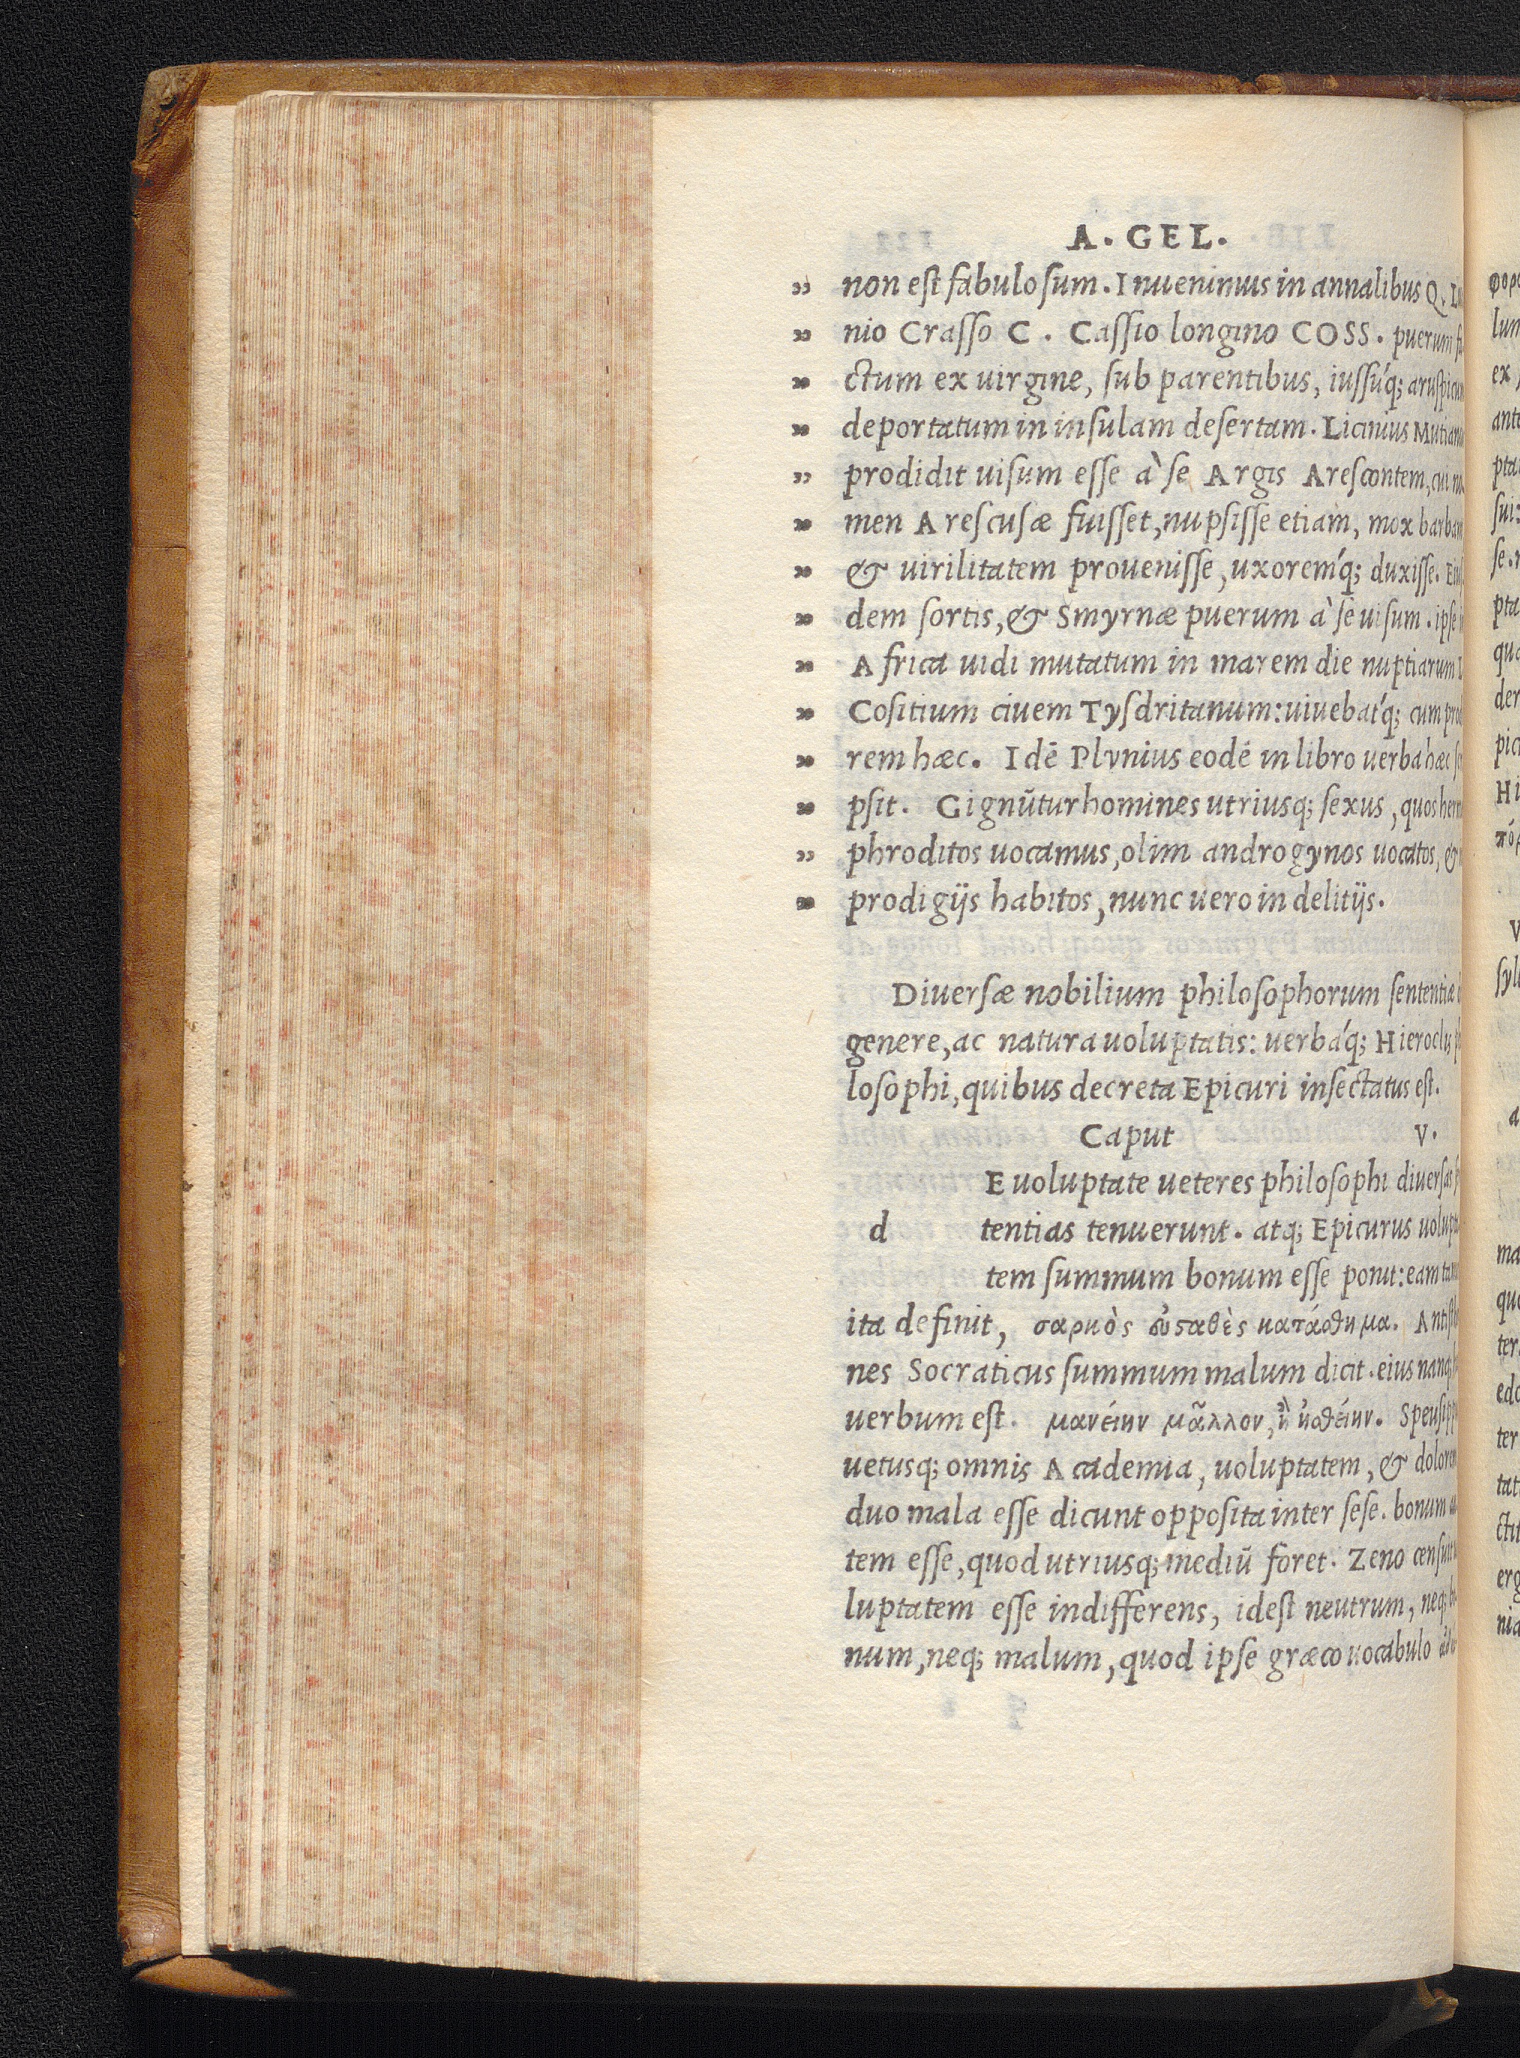 A. GEL.
non est fabulosum. Inuenimus in annalibus Q. 
nio Crasso C. Cassio longino COSS. puerum
ctum ex uirgine, sub parentibus, iussúq; aruspicum
deportatum in insulam desertam. Licinius Mutianus
prodidit uisum esse à se Argis Arescontem, cui no
men Arescusæ fuisset, nupsisse etiam, mox barbam
& uirilitatem prouenisse, uxoreḿq; duxisse. Eius
dem sortis, & Smyrnæ puerum à se uisum. ipse in
Africa uidi mutatum in marem die nuptiarum L
Cositium ciuem Tysdritanum: uiuebat́q; cum prode
rem hæc. Idē Plynius eodē in libro uerba hæc scri
psit. Gignūtur homines utriusq; sexus, quos herma
phroditos uocamus, olim androgynos uocatos, &
prodigijs habitos, nunc uero in delitijs.
Diuersæ nobilium philosophorum sententiæ
genere, ac natura uoluptatis: uerbáq; Hieroclis
losophi, quibus decreta Epicuri insectatus est.
Caput V.
E uoluptate ueteres philosophi diuersas
d tentias tenuerunt. atq; Epicurus uolupta
tem summum bonum esse ponit: eam tamen
ita definit, σαρκὸς εὐσταθὲς κατάστημα. Antisthe
nes Socraticus summum malum dicit. eius nanq;
uerbum est. μανείην μᾶλλον, ἢ ἡσθείην. Speusippus
uetusq; omnis Academia, uoluptatem, & dolorem
duo mala esse dicunt opposita inter sese. bonum au
tem esse, quod utriusq; mediū foret. Zeno censuit
luptatem esse indifferens, idest neutrum, neq; bo
num, neq; malum, quod ipse græco uocabulo
φορ
lum
ex
ante
pta
sui:
se.
pta
qua
der
pic
Hi
πόρ
V
syl
a
ma
qua
ter
edo
ter
tat
ctit
erg
nia